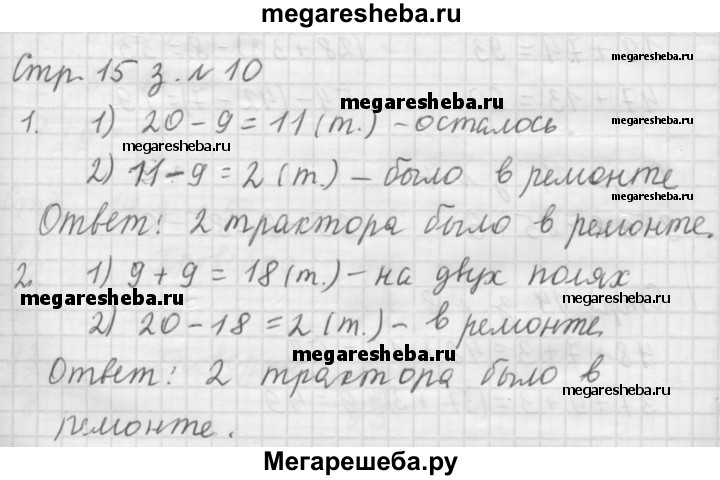 megaresheba.ru
Стр. 15 з. № 10
megaresheba.ru
megaresheba.ru
1. 1) 20 - 9 = 11 (т.) - осталось.
megaresheba.ru
megaresheba.ru
2) 11 - 9 = 2 (т.) - было в ремонте
Ответ: 2 трактора было в ремонте.
2. 1) 9 + 9 = 18 (т.) - на двух полях
megaresheba.ru
megaresheba.ru
2) 20 - 18 = 2 (т.) - в ремонте.
megaresheba.ru
megaresheba.ru
Ответ: 2 трактора было в
megaresheba.ru
ремонте.
Мегарешеба.ру